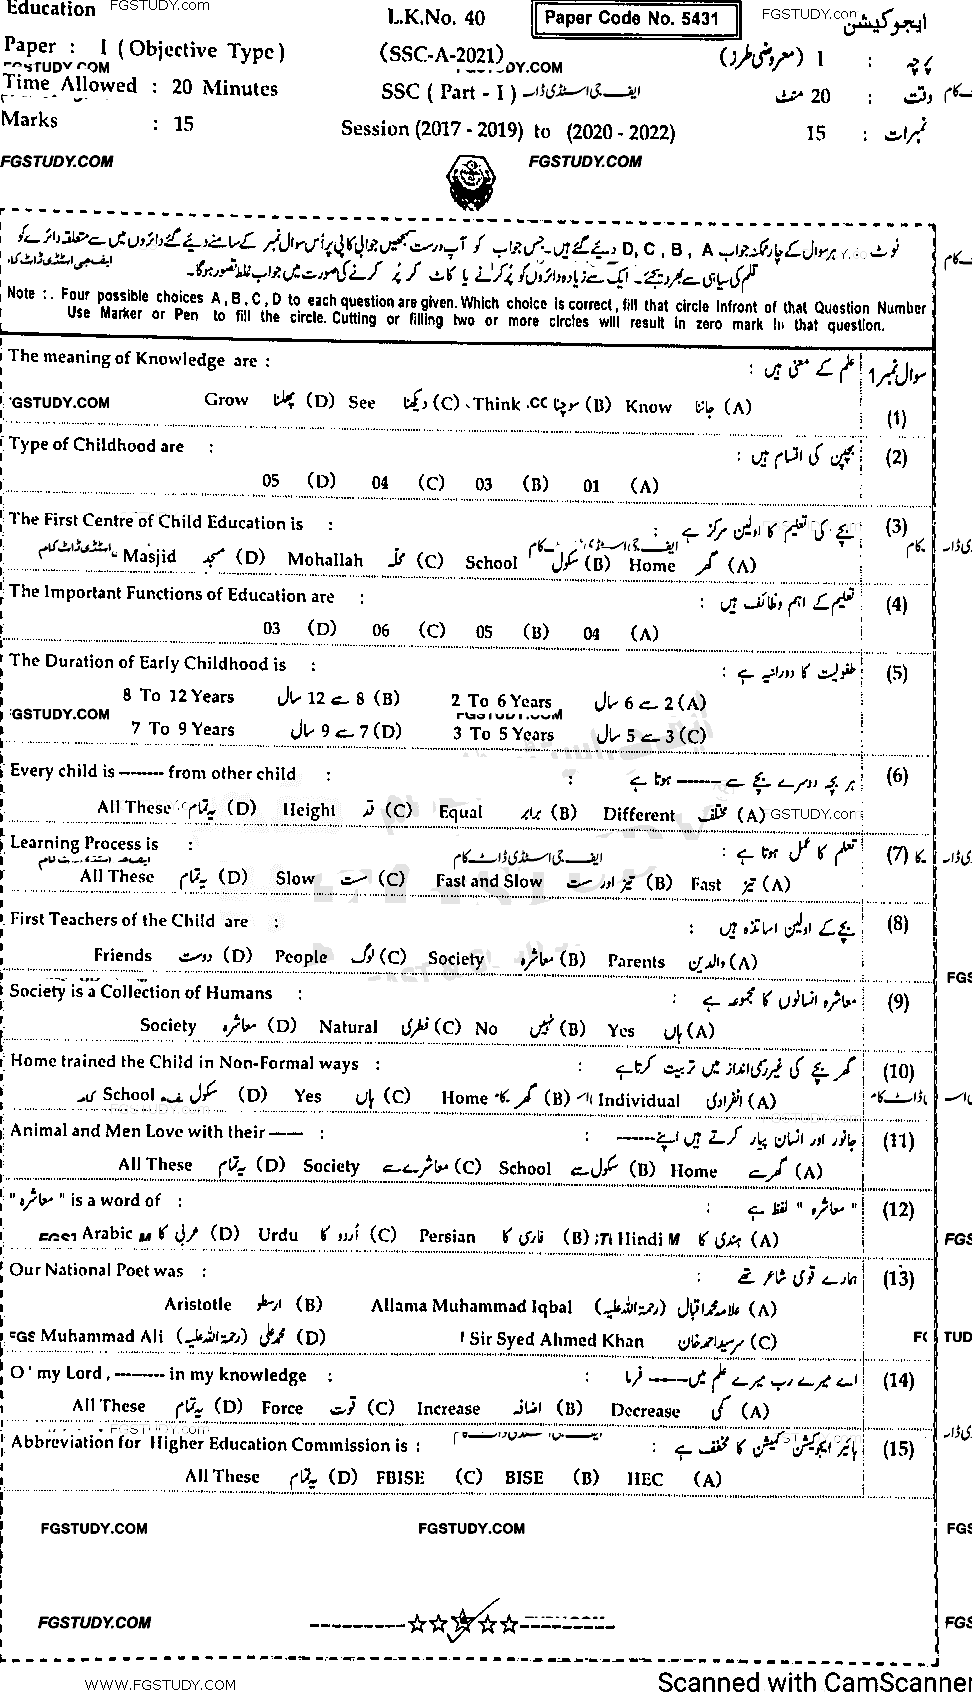 Education FGSTUDY.com L.K.No. 40 Paper Code No. 5431 FGSTUDY.con ایجوکیشن
Paper : I (Objective Type) (SSC-A-2021) پرچہ : I (معروضی طرز)
Time Allowed : 20 Minutes SSC (Part - I) ایف جی اسٹڈی ڈاٹ وقت : 20 منٹ
Marks : 15 Session (2017 - 2019) to (2020 - 2022) نمبرات : 15
FGSTUDY.COM FGSTUDY.COM
نوٹ ہر سوال کے چار ممکنہ جواب D, C, B, A دیئے گئے ہیں۔ جس جواب کو آپ درست سمجھیں جوابی کاپی پر اُس سوال نمبر کے سامنے دیئے گئے دائروں میں سے متعلقہ دائرے کو
قلم کی سیاہی سے بھر دیجئے۔ ایک سے زیادہ دائروں کو پُر کرنے یا کاٹ کر پُر کرنے کی صورت میں جواب غلط تصور ہوگا۔
Note :. Four possible choices A, B, C, D to each question are given. Which choice is correct, fill that circle Infront of that Question Number
Use Marker or Pen to fill the circle. Cutting or filling two or more circles will result in zero mark in that question.
The meaning of Knowledge are : علم کے معنی ہیں : سوال نمبر 1
(1)
GSTUDY.COM Grow پھلنا (D) See دیکھنا (C) Think سوچنا (B) Know جاننا (A)
Type of Childhood are : بچپن کی اقسام ہیں : (2)
05 (D) 04 (C) 03 (B) 01 (A)
The First Centre of Child Education is : بچے کی تعلیم کا اولین مرکز ہے : (3)
Masjid مسجد (D) Mohallah محلہ (C) School سکول (B) Home گھر (A)
The Important Functions of Education are : تعلیم کے اہم وظائف ہیں : (4)
03 (D) 06 (C) 05 (B) 04 (A)
The Duration of Early Childhood is : طفولیت کا دورانیہ ہے : (5)
8 To 12 Years 8 سے 12 سال (B) 2 To 6 Years 2 سے 6 سال (A)
GSTUDY.COM FGSTUDY.COM
7 To 9 Years 7 سے 9 سال (D) 3 To 5 Years 3 سے 5 سال (C)
Every child is ------- from other child : ہر بچہ دوسرے بچے سے ------ ہوتا ہے : (6)
All These یہ تمام (D) Height قد (C) Equal برابر (B) Different مختلف (A) FGSTUDY.con
Learning Process is : تعلم کا عمل ہوتا ہے : (7)
ایف جی اسٹڈی ڈاٹ کام
All These یہ تمام (D) Slow سست (C) Fast and Slow تیز اور سست (B) Fast تیز (A)
First Teachers of the Child are : بچے کے اولین اساتذہ ہیں : (8)
Friends دوست (D) People لوگ (C) Society معاشرہ (B) Parents والدین (A)
Society is a Collection of Humans : معاشرہ انسانوں کا مجموعہ ہے : (9)
Society معاشرہ (D) Natural فطری (C) No نہیں (B) Yes ہاں (A)
Home trained the Child in Non-Formal ways : گھر بچے کی غیر رسمی انداز میں تربیت کرتا ہے : (10)
School سکول (D) Yes ہاں (C) Home گھر (B) Individual انفرادی (A)
Animal and Men Love with their ------ : جانور اور انسان پیار کرتے ہیں اپنے ------ : (11)
All These یہ تمام (D) Society معاشرے سے (C) School سکول سے (B) Home گھر سے (A)
"معاشرہ" is a word of : "معاشرہ" لفظ ہے : (12)
Arabic عربی کا (D) Urdu اُردو کا (C) Persian فارسی کا (B) Hindi ہندی کا (A)
Our National Poet was : ہمارے قومی شاعر تھے : (13)
Aristotle ارسطو (B) Allama Muhammad Iqbal علامہ محمد اقبال (رحمۃ اللہ علیہ) (A)
Muhammad Ali محمد علی (رحمۃ اللہ علیہ) (D) Sir Syed Ahmed Khan سرسید احمد خان (C)
O' my Lord, -------- in my knowledge : اے میرے رب میرے علم میں ------ فرما : (14)
All These یہ تمام (D) Force قوت (C) Increase اضافہ (B) Decrease کمی (A)
Abbreviation for Higher Education Commission is : ہائیر ایجوکیشن کمیشن کا مخفف ہے : (15)
All These یہ تمام (D) FBISE (C) BISE (B) HEC (A)
FGSTUDY.COM FGSTUDY.COM FGS
FGSTUDY.COM FGS
WWW.FGSTUDY.COM Scanned with CamScanner